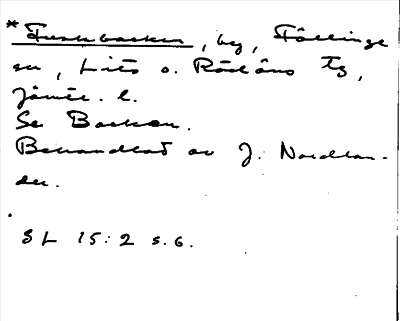 * Fuskbacken, by, Föllinge
sn, Lits o. Rödöns tg,
Jämtl. l.
Se Backen.
Behandlat av J. Nordlan-
der.
SL 15:2 s. 6.